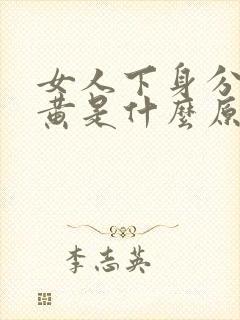 女人下身分
黄是什麼原
李志英